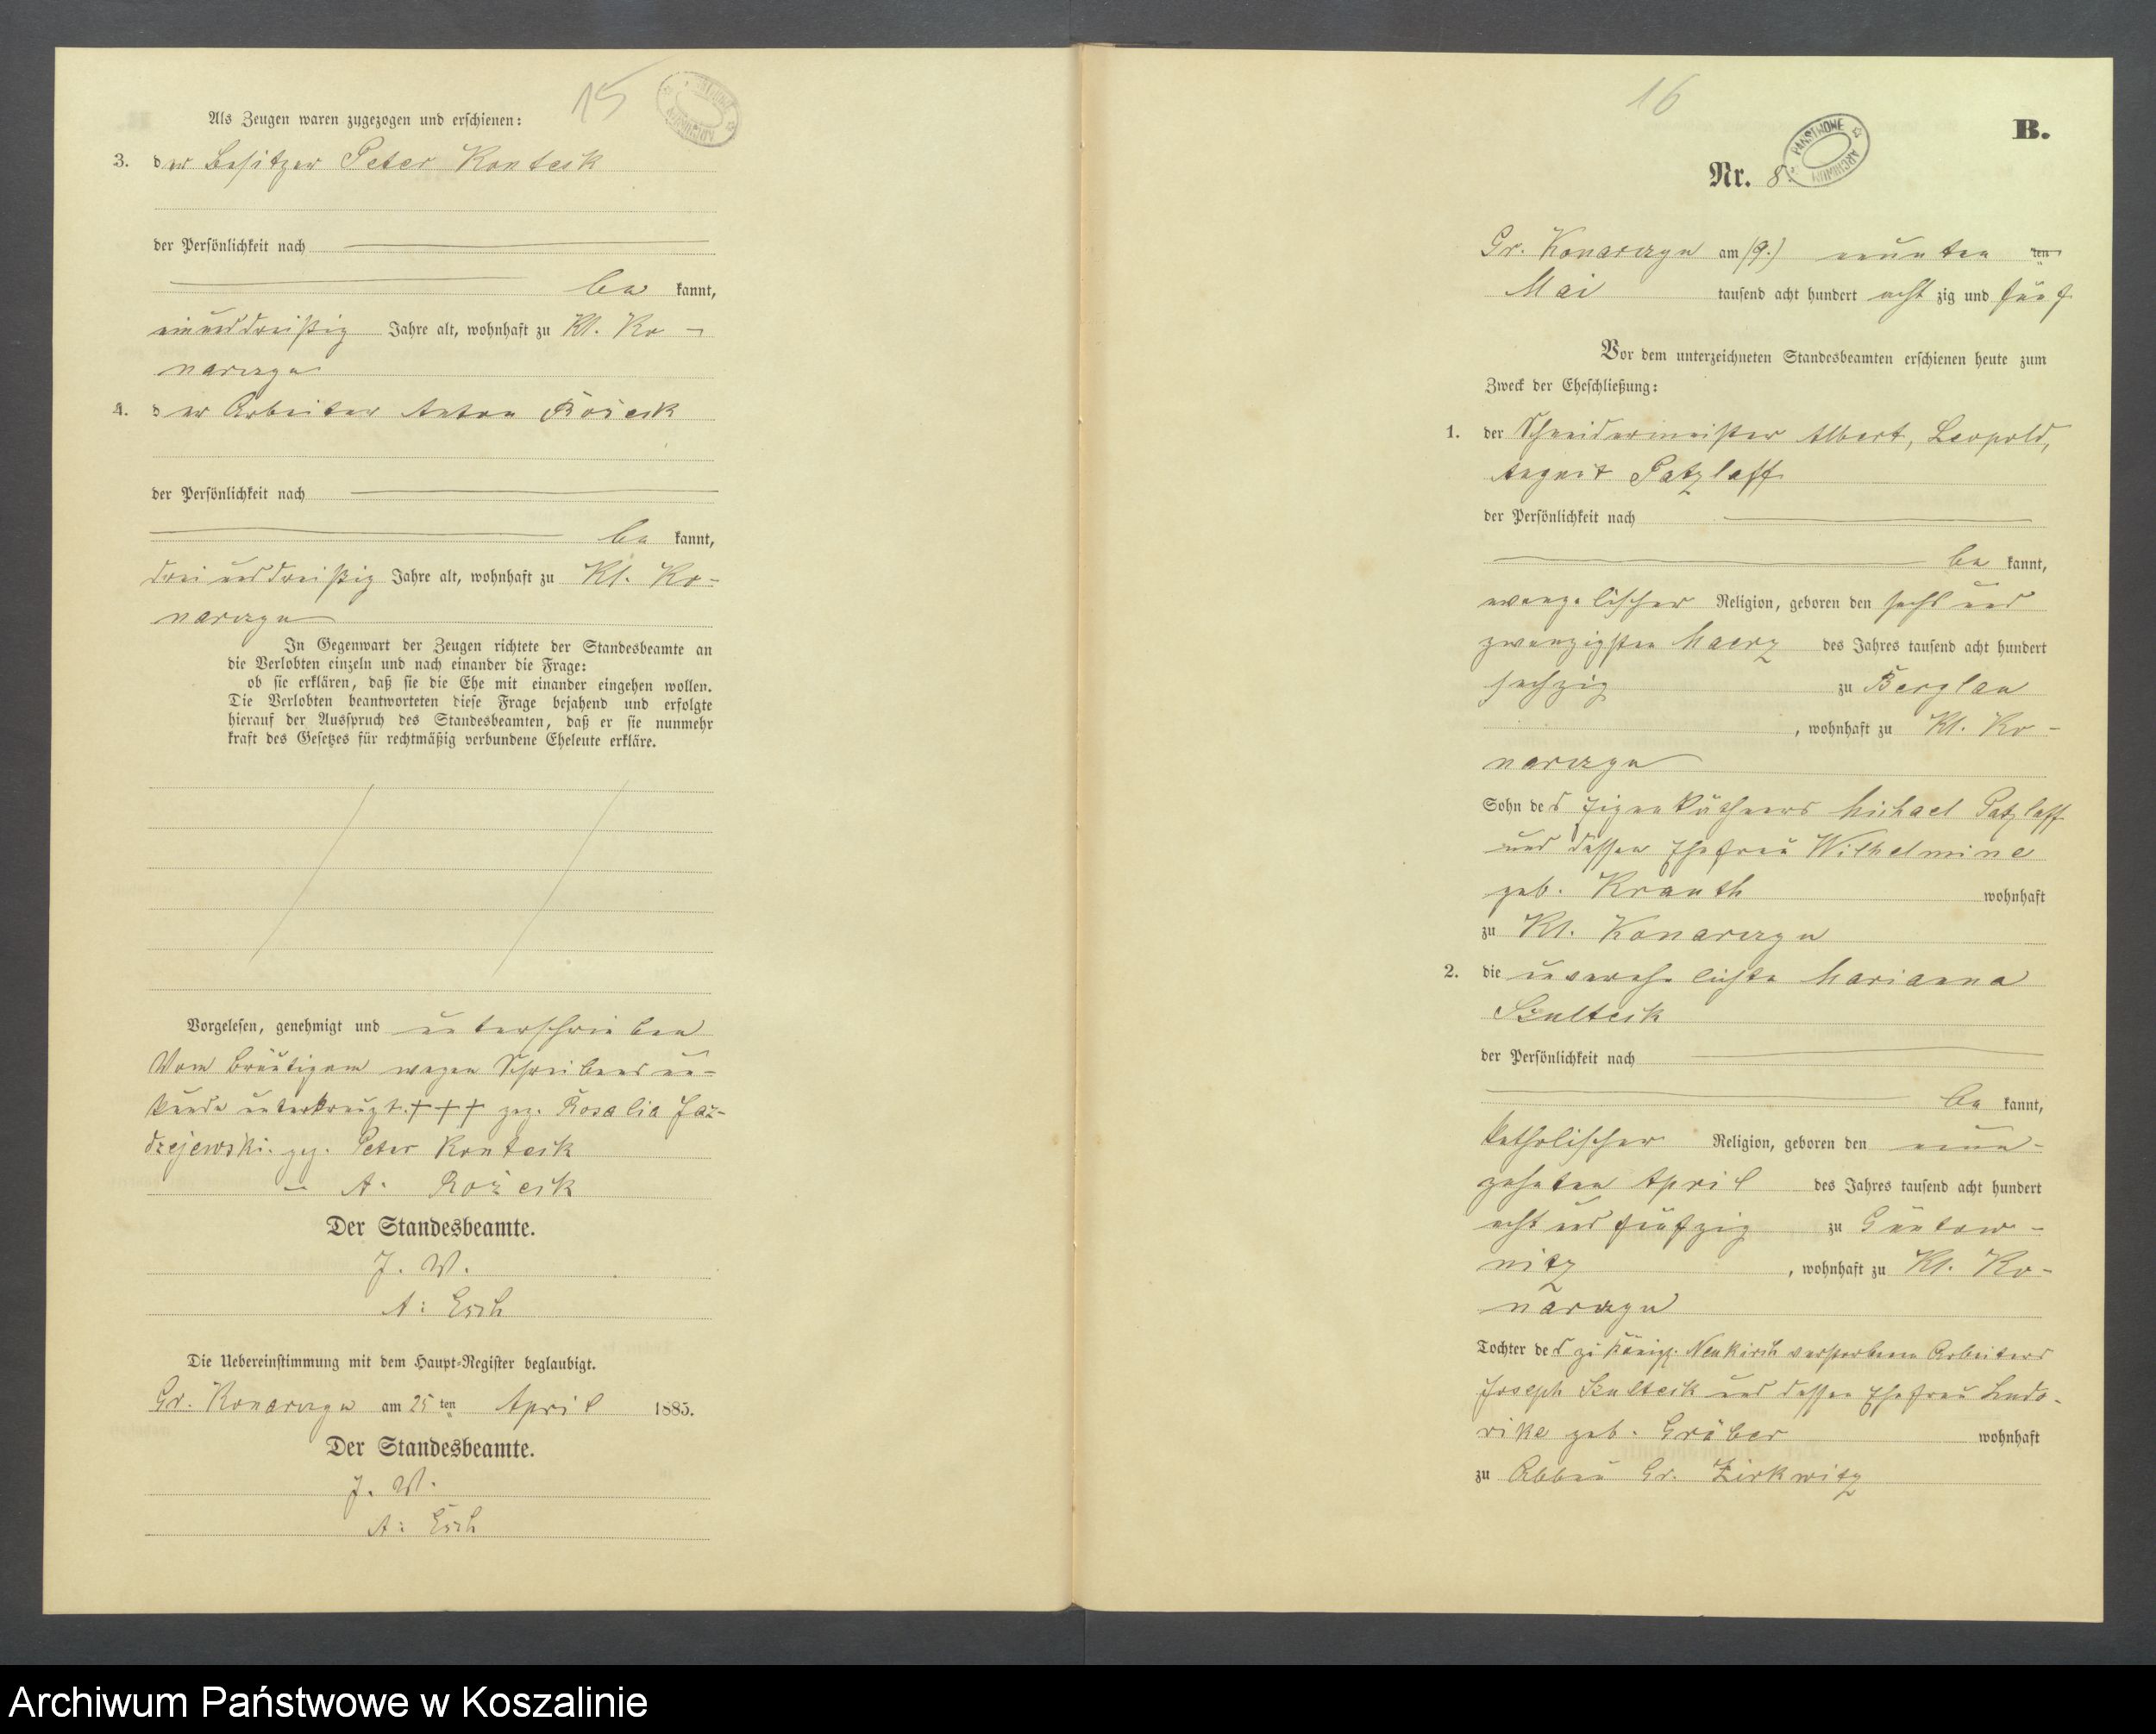 15
Als Zeugen waren zugezogen und erschienen:
3. der Besitzer Peter Kontek
der Persönlichkeit nach
be kannt,
einunddreißig Jahre alt, wohnhaft zu Kl. Ko-
narczyn
4. der Arbeiter Anton
der Persönlichkeit nach
be kannt,
dreiunddreißig Jahre alt, wohnhaft zu Kl. Ko-
narczyn
In Gegenwart der Zeugen richtete der Standesbeamte an
die Verlobten einzeln und nach einander die Frage:
ob sie erklären, daß sie die Ehe mit einander eingehen wollen.
Die Verlobten beantworteten diese Frage bejahend und erfolgte
hierauf der Ausspruch des Standesbeamten, daß er sie nunmehr
kraft des Gesetzes für rechtmäßig verbundene Eheleute erkläre.
Vorgelesen, genehmigt und unterschrieben
Vom Bräutigam wegen Schreibensun-
kunde unterkreuzt. +++ gez. Rosalia Jaz-
drzejewski. gez. Peter
" A.
Der Standesbeamte.
J. V.
A: Esch
Die Uebereinstimmung mit dem Haupt-Register beglaubigt.
Gr. Konarczyn am 25 ten April 1885.
Der Standesbeamte.
J. V.
A: Esch
16
B.
PAŃSTWOWE ARCHIWUM
Nr. 8
Gr. Konarczyn am (9.) neunten ten
Mai tausend acht hundert acht zig und fünf
Vor dem unterzeichneten Standesbeamten erschienen heute zum
Zweck der Eheschließung:
1. der Schneidermeister Albert, Leopold,
August Patzlaff
der Persönlichkeit nach
be kannt,
evangelischer Religion, geboren den sechs und
zwanzigsten Maerz des Jahres tausend acht hundert
sechzig zu Berglau
, wohnhaft zu Kl. Ko-
narczyn
Sohn des Eigenkäthners Michael Patzlaff
und dessen Ehefrau Wilhelmine
geb. Krauth wohnhaft
zu Kl. Konarczyn
2. die unverehelichte Marianna
Szulteik
der Persönlichkeit nach
be kannt,
katholischer Religion, geboren den neun-
zehnten April des Jahres tausend acht hundert
acht und fünfzig zu Güntow-
nitz, wohnhaft zu Kl. Ko-
narczyn
Tochter des zu Königl. Neukirch verstorbenen Arbeiters
Joseph Szulteik und dessen Ehefrau Ludo-
vike geb. Gräber wohnhaft
zu Abbau Gr. Zirkwitz
Archiwum Państwowe w Koszalinie